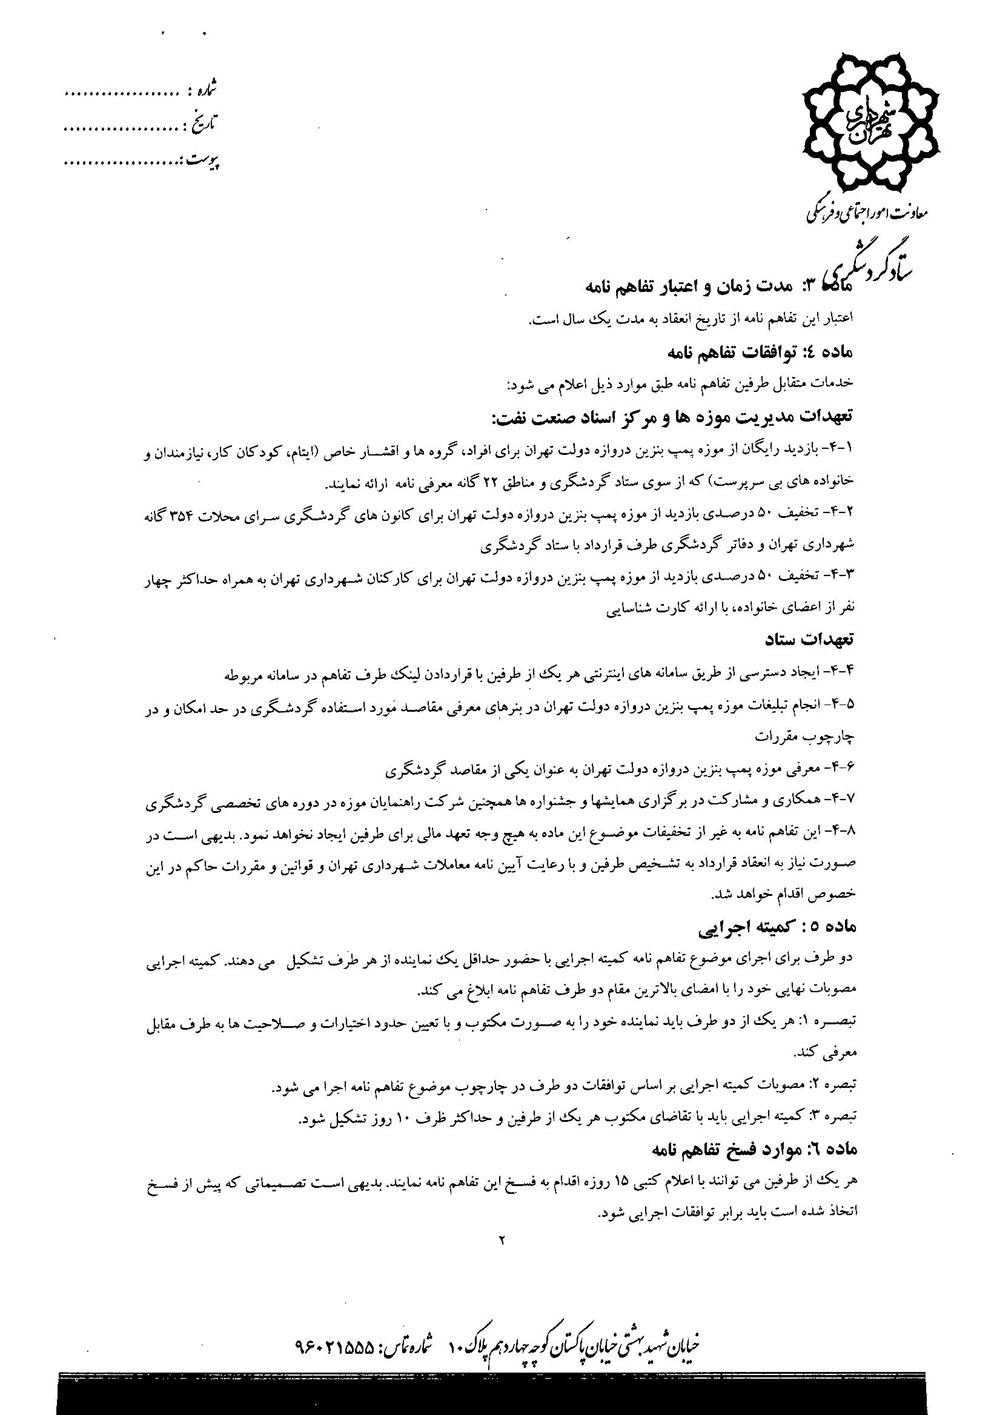 شماره : ....................
تاریخ : ....................
پیوست : ....................
شهرداری
تهران
معاونت امور اجتماعی و فرهنگی
ستاد گردشگری
ماده ۳: مدت زمان و اعتبار تفاهم نامه
اعتبار این تفاهم نامه از تاریخ انعقاد به مدت یک سال است.
ماده ٤: توافقات تفاهم نامه
خدمات متقابل طرفین تفاهم نامه طبق موارد ذیل اعلام می شود:
تعهدات مدیریت موزه ها و مرکز اسناد صنعت نفت:
۴-۱- بازدید رایگان از موزه پمپ بنزین دروازه دولت تهران برای افراد، گروه ها و اقشار خاص (ایتام، کودکان کار، نیازمندان و
خانواده های بی سرپرست) که از سوی ستاد گردشگری و مناطق ۲۲ گانه معرفی نامه ارائه نمایند.
۴-۲- تخفیف ۵۰ درصدی بازدید از موزه پمپ بنزین دروازه دولت تهران برای کانون های گردشگری سرای محلات ۳۵۴ گانه
شهرداری تهران و دفاتر گردشگری طرف قرارداد با ستاد گردشگری
۴-۳- تخفیف ۵۰ درصدی بازدید از موزه پمپ بنزین دروازه دولت تهران برای کارکنان شهرداری تهران به همراه حداکثر چهار
نفر از اعضای خانواده، با ارائه کارت شناسایی
تعهدات ستاد
۴-۴- ایجاد دسترسی از طریق سامانه های اینترنتی هر یک از طرفین با قراردادن لینک طرف تفاهم در سامانه مربوطه
۴-۵- انجام تبلیغات موزه پمپ بنزین دروازه دولت تهران در بنرهای معرفی مقاصد مورد استفاده گردشگری در حد امکان و در
چارچوب مقررات
۴-۶- معرفی موزه پمپ بنزین دروازه دولت تهران به عنوان یکی از مقاصد گردشگری
۴-۷- همکاری و مشارکت در برگزاری همایشها و جشنواره ها همچنین شرکت راهنمایان موزه در دوره های تخصصی گردشگری
۴-۸- این تفاهم نامه به غیر از تخفیفات موضوع این ماده به هیچ وجه تعهد مالی برای طرفین ایجاد نخواهد نمود. بدیهی است در
صورت نیاز به انعقاد قرارداد به تشخیص طرفین و با رعایت آیین نامه معاملات شهرداری تهران و قوانین و مقررات حاکم در این
خصوص اقدام خواهد شد.
ماده ۵: کمیته اجرایی
دو طرف برای اجرای موضوع تفاهم نامه کمیته اجرایی با حضور حداقل یک نماینده از هر طرف تشکیل می دهند. کمیته اجرایی
مصوبات نهایی خود را با امضای بالاترین مقام دو طرف تفاهم نامه ابلاغ می کند.
تبصره ۱: هر یک از دو طرف باید نماینده خود را به صورت مکتوب و با تعیین حدود اختیارات و صلاحیت ها به طرف مقابل
معرفی کند.
تبصره ۲: مصوبات کمیته اجرایی بر اساس توافقات دو طرف در چارچوب موضوع تفاهم نامه اجرا می شود.
تبصره ۳: کمیته اجرایی باید با تقاضای مکتوب هر یک از طرفین و حداکثر ظرف ۱۰ روز تشکیل شود.
ماده ٦: موارد فسخ تفاهم نامه
هر یک از طرفین می توانند با اعلام کتبی ۱۵ روزه اقدام به فسخ این تفاهم نامه نمایند. بدیهی است تصمیماتی که پیش از فسخ
اتخاذ شده است باید برابر توافقات اجرایی شود.
۲
خیابان شهید بهشتی خیابان پاکستان کوچه چهاردهم پلاک ۱۰ شماره تماس: ۹۶۰۲۱۵۵۵